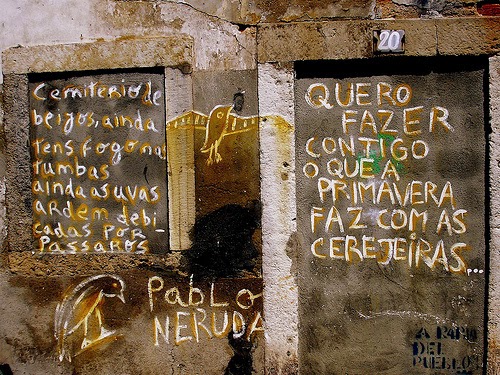 Cemiterio de
beijos, ainda
tens fogo na
tumbas
ainda as uvas
ardem debi
cadas por
Passaros.
Pablo
NERUDA
20
QUERO
FAZER
CONTIGO
O QUE A
PRIMAVERA
FAZ COM AS
CEREJEIRAS...
DEL
PUEBLO